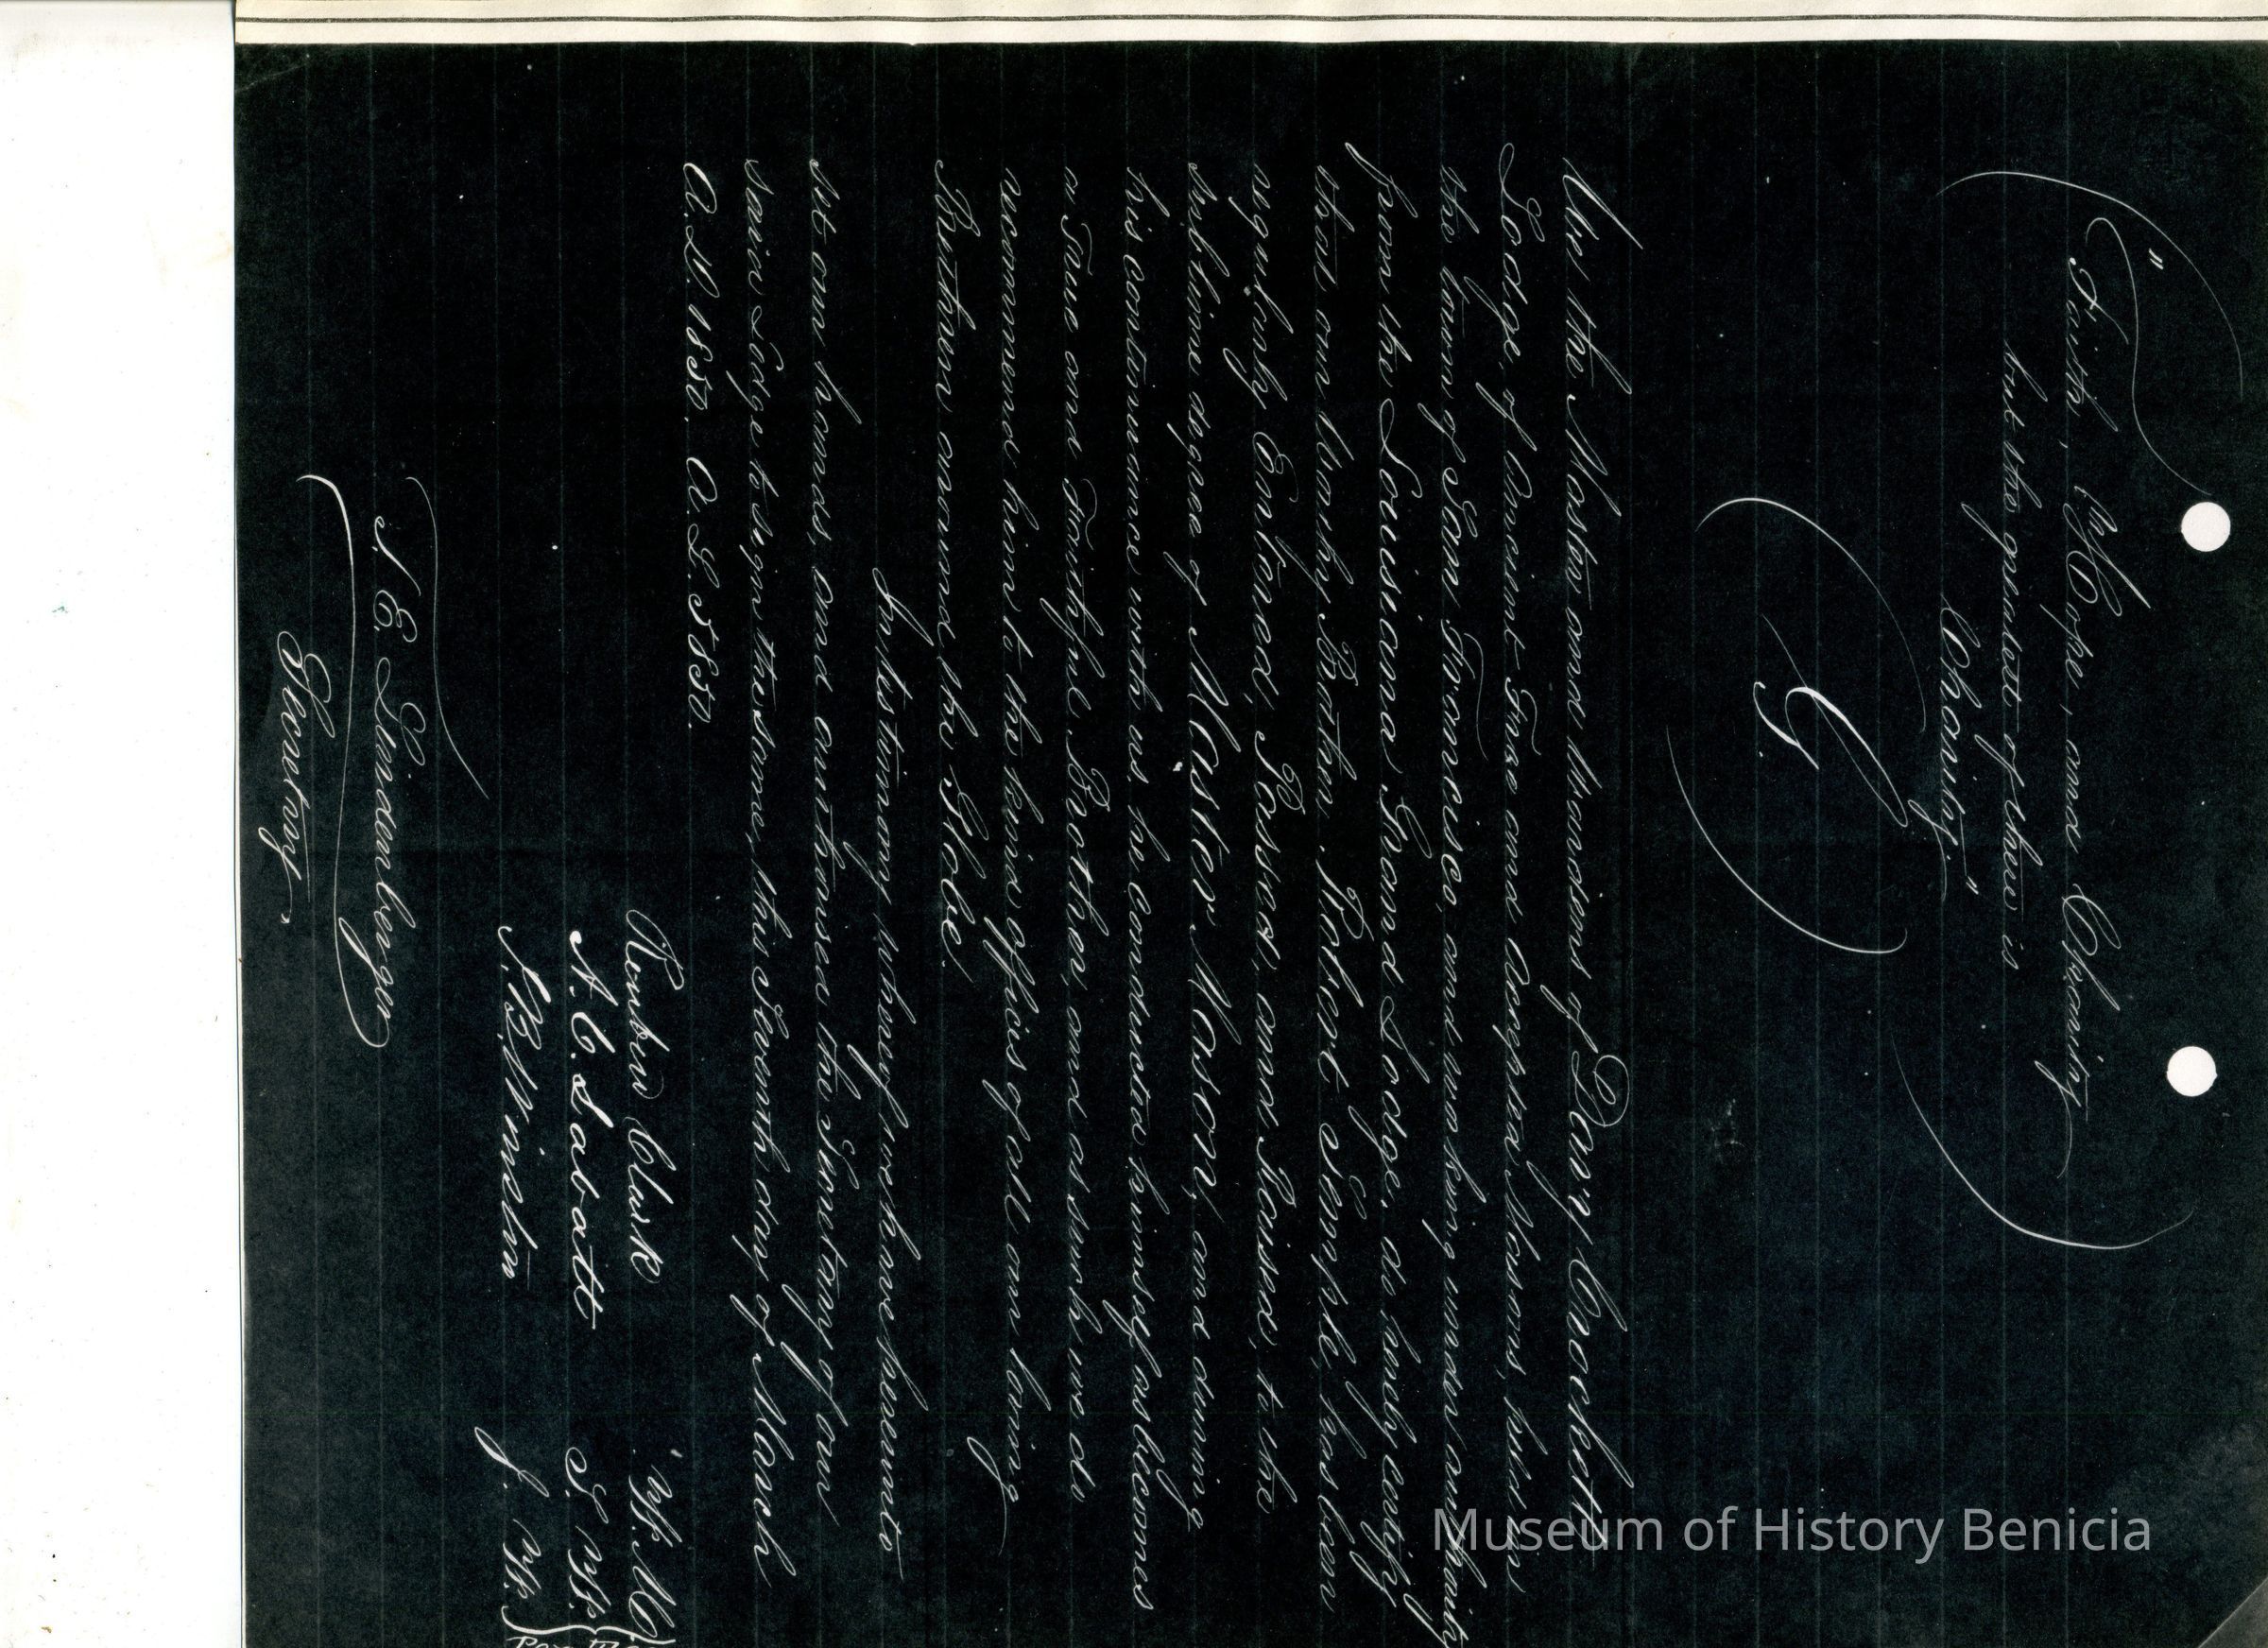 "Faith, Hope, and Charity
but the greatest of these is
Charity."
G.
We the Master and Wardens of Davy Crockett
Lodge, of Ancient Free and Accepted Masons, held in
the town of San Francisco, and working under authority
from the Louisiana Grand Lodge, do hereby certify
that our worthy Brother, Robert Semple, has been
regularly Entered, Passed, and Raised, to the
sublime degree of Master Mason, and during
his continuance with us, he conducted himself as becomes
a True and Faithful Brother, and as such we do
recommend him to the kind offices of all our loving
Brethren around the Globe.
In testimony whereof we have hereunto
set our hands, and authorised the Secretary of our
said Lodge to sign the same, this Seventh day of March
A.D. 1850. A.L. 5850.
Reubin Clark W.M.
A. C. Labatt S. W.
J. B. Winston J. W.
T. E. Lindenberger
Secretary.
Museum of History Benicia